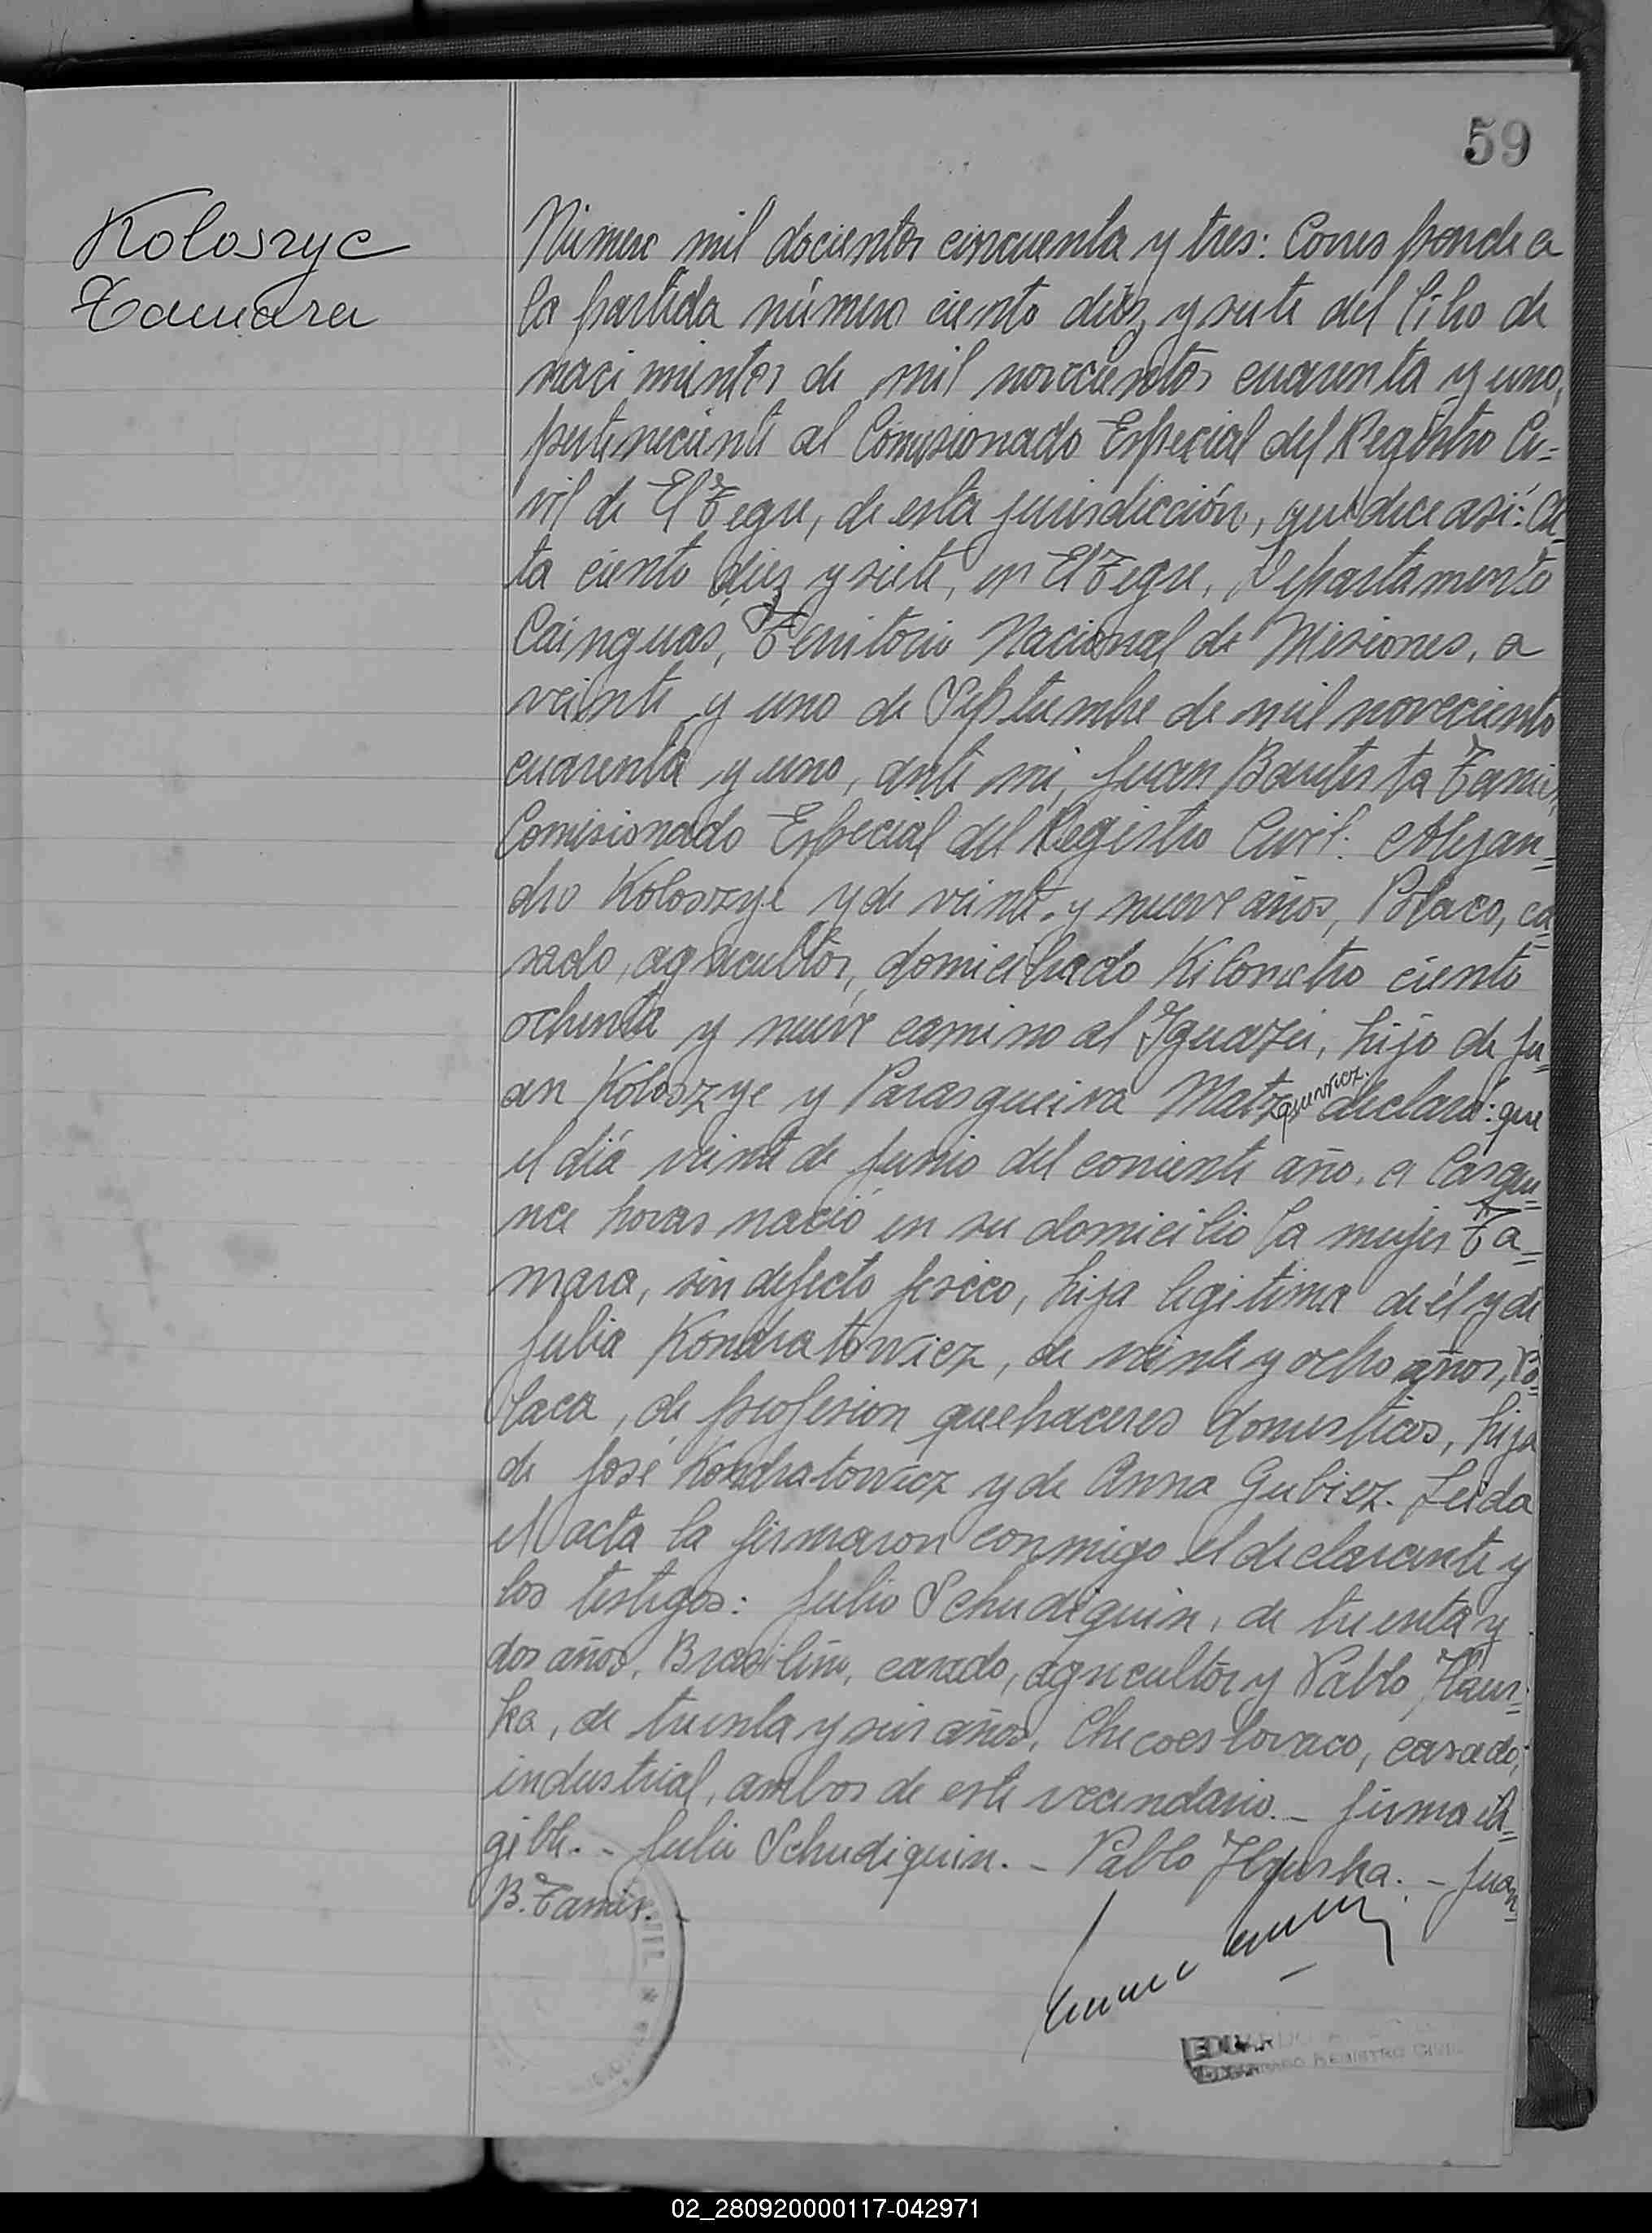 59
Koloszyc
Tamara
Número mil docientos cincuenta y tres: Corresponde a
la partida número ciento diez y siete del libro de
nacimientos de mil novecientos cuarenta y uno,
perteneciente al Comisionado Especial del Registro Ci=
vil de El Tegre, de esta jurisdicción, que dice así: Ac=
ta ciento diez y siete, en El Tegre, Departamento
Cainguas, Territorio Nacional de Misiones, a
veinte y uno de Septiembre de mil novecientos
cuarenta y uno, ante mí, Juan Bautista Tamis,
Comisionado Especial del Registro Civil: Alejan=
dro Koloszyc y de veinte y nueve años, Polaco, ca=
sado, agricultor, domiciliado Kilometro ciento
ochenta y nueve camino al Iguazú, hijo de Ju=
an Koloszyc y Parasqueiva declaró: que
el día veinte de Junio del corriente año, a las quin=
nce horas nació en su domicilio la mujer Ta=
mara, sin defecto fisico, hija legitima de él y de
Julia Kondratowicz, de veinte y ocho años, Po=
laca, de profesion quehaceres domesticos, hija
de José Kondratowicz y de Anna Gubiez. Leida
el acta la firmaron conmigo el declarante y
los testigos: Julio Schudiquin, de treinta y
dos años, Brasileño, casado, agricultor y Pablo Hrus=
ka, de treinta y seis años, Checoeslovaco, casado,
industrial, ambos de este vecindario. - firma ile=
gible. - Julio Schudiquin. - Pablo Hruska. - Juan
B. Tamis. -
REGISTRO CIVIL
02_280920000117-042971